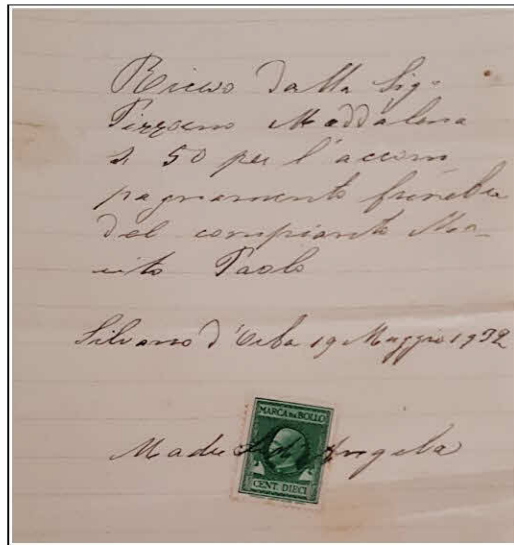 Ricevo dalla Sig.
Pizzorno Maddalena
£ 50 per l'accom
pagnamento funebre
del compianto Ma_
rito Paolo
Silvano d'Orba 19 Maggio 1932
MARCA DA BOLLO
Madre Angela
CENT. DIECI